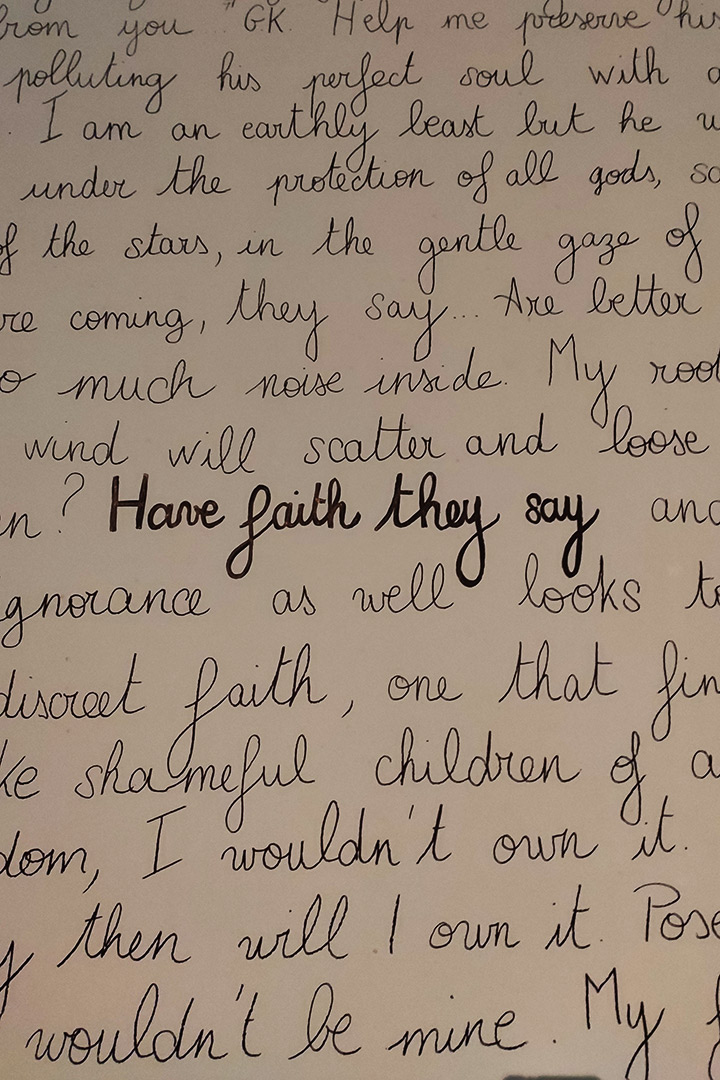 from you "GK. Help me preserve his
polluting his perfect soul with a
. I am an earthly beast but he w
under the protection of all gods, so
of the stars, in the gentle gaze of
re coming, they say... Are better
o much noise inside. My root
wind will scatter and loose
n? Have faith they say and
ignorance as well looks to
discreet faith, one that fin
ke shameful children of a
dom, I wouldn't own it.
y then will I own it. Pose
wouldn't be mine. My f